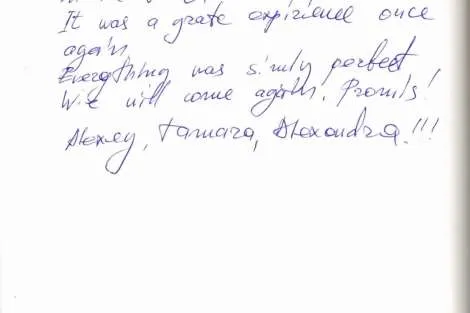 It was a grate expirience once
again.
Everything was simly perfect,
We will come again. Promis!
Alexey, Tamara, Alexandra!!!